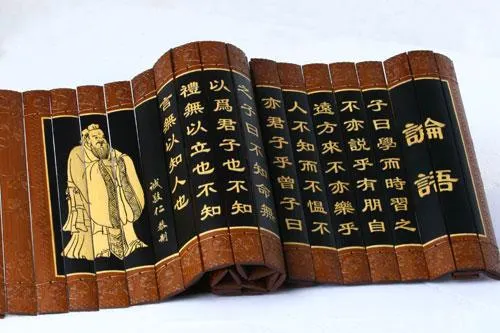 論語
子曰學而時習之
不亦說乎有朋自
遠方來不亦樂乎
人不知而不慍不
亦君子乎曾子曰
之子曰不知命無
以爲君子也不知
禮無以立也不知
言無以知人也
誠敬仁